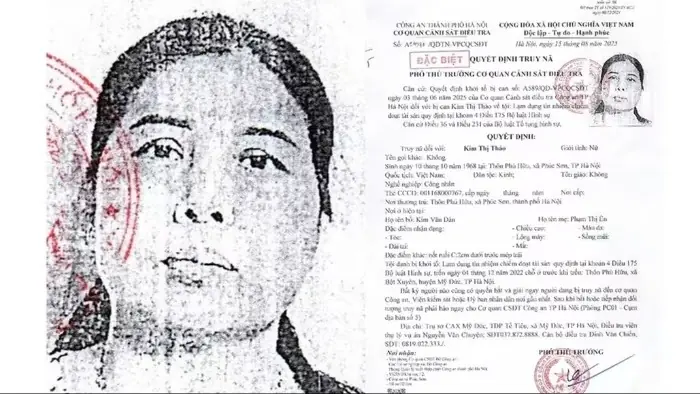 CÔNG AN THÀNH PHỐ HÀ NỘI
CƠ QUAN CẢNH SÁT ĐIỀU TRA
CỘNG HÒA XÃ HỘI CHỦ NGHĨA VIỆT NAM
Độc lập - Tự do - Hạnh phúc
Hà Nội, ngày 15 tháng 08 năm 2025
ĐẶC BIỆT
QUYẾT ĐỊNH TRUY NÃ
PHÓ THỦ TRƯỞNG CƠ QUAN CẢNH SÁT ĐIỀU TRA
Căn cứ Quyết định khởi tố bị can số: A589/QĐ-VPCQCSĐT
ngày 03 tháng 06 năm 2025 của Cơ quan Cảnh sát điều tra Công an TP
Hà Nội đối với bị can Kim Thị Thảo về tội: Lạm dụng tín nhiệm chiếm
đoạt tài sản quy định tại khoản 4 Điều 175 Bộ luật Hình sự
Căn cứ Điều 36 và Điều 231 của Bộ luật Tố tụng hình sự,
QUYẾT ĐỊNH:
Truy nã đối với: Kim Thị Thảo Giới tính: Nữ
Tên gọi khác: Không
Sinh ngày 10 tháng 10 năm 1968 tại: Thôn Phú Hữu, xã Phúc Sơn, TP Hà Nội
Quốc tịch: Việt Nam; Dân tộc: Kinh; Tôn giáo: Không
Nghề nghiệp: Công nhân
Thẻ CCCD: 001168000367, cấp ngày tháng năm Nơi cấp:
Nơi thường trú: Thôn Phú Hữu, xã Phúc Sơn, thành phố Hà Nội
Nơi ở hiện tại:
Họ tên bố: Kim Văn Dân Họ tên mẹ: Phạm Thị Én
Đặc điểm nhận dạng: - Chiều cao: - Màu da:
- Tóc: - Lông mày: - Sống mũi:
- Dái tai: - Mắt:
Đặc điểm khác: nốt ruồi C:2cm dưới trước mép trái
Tội danh bị khởi tố: Lạm dụng tín nhiệm chiếm đoạt tài sản quy định tại khoản 4 Điều 175
Bộ luật Hình sự, trốn ngày 04 tháng 12 năm 2022 chỗ ở trước khi trốn: Thôn Phú Hữu, xã
Bột Xuyên, huyện Mỹ Đức, TP Hà Nội
Bất kỳ người nào cũng có quyền bắt và giải ngay người đang bị truy nã đến cơ quan
Công an, Viện kiểm sát hoặc Uỷ ban nhân dân nơi gần nhất. Sau khi bắt hoặc tiếp nhận đối
tượng truy nã phải báo ngay cho Cơ quan CSĐT Công an TP Hà Nội (Phòng PC01 - Cụm
địa bàn số 5)
Địa chỉ: Trụ sở CAX Mỹ Đức, TDP Tế Tiêu, xã Mỹ Đức, TP Hà Nội, Điều tra viên
thụ lý vụ án Nguyễn Văn Chuyên; Cán bộ điều tra Đinh Văn Chiến,
Nơi nhận:
PHÓ THỦ TRƯỞNG